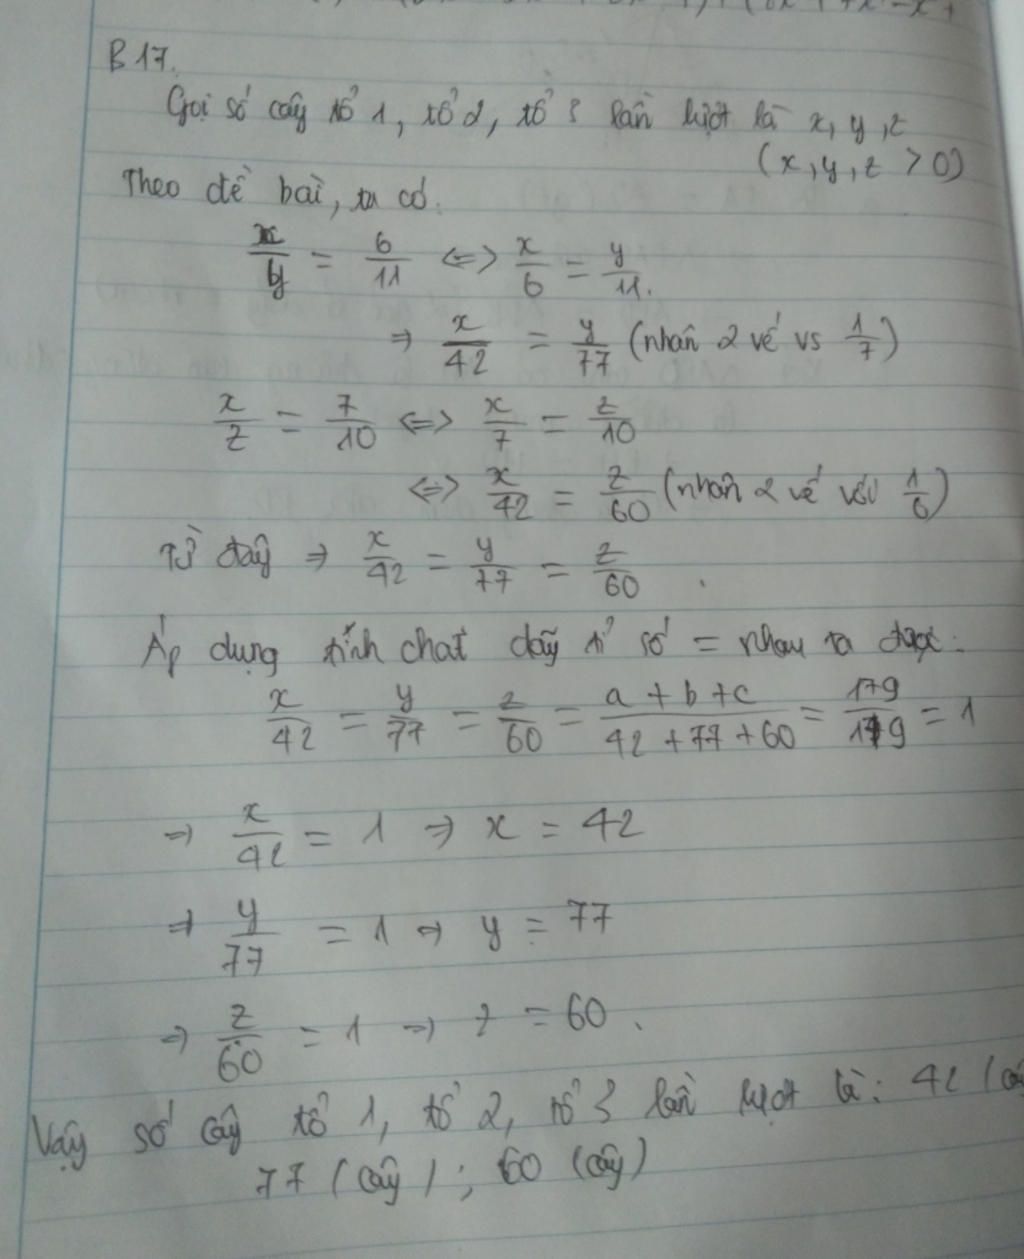 B17.
Gọi số cây tổ 1, tổ 2, tổ 3 lần lượt là x, y, z
(x, y, z > 0)
Theo đề bài, ta có.
x/y = 6/11 <=> x/6 = y/11.
=> x/42 = y/77 (nhân 2 vế vs 1/7)
x/z = 7/10 <=> x/7 = z/10
<=> x/42 = z/60 (nhân 2 vế với 1/6)
Từ đây => x/42 = y/77 = z/60.
Áp dụng tính chất dãy tỉ số = nhau ta được:
x/42 = y/77 = z/60 = (a + b + c)/(42 + 77 + 60) = 179/179 = 1
=> x/42 = 1 => x = 42
=> y/77 = 1 => y = 77
=> z/60 = 1 => z = 60.
Vậy số cây tổ 1, tổ 2, tổ 3 lần lượt là: 42 (câ
77 (cây); 60 (cây)